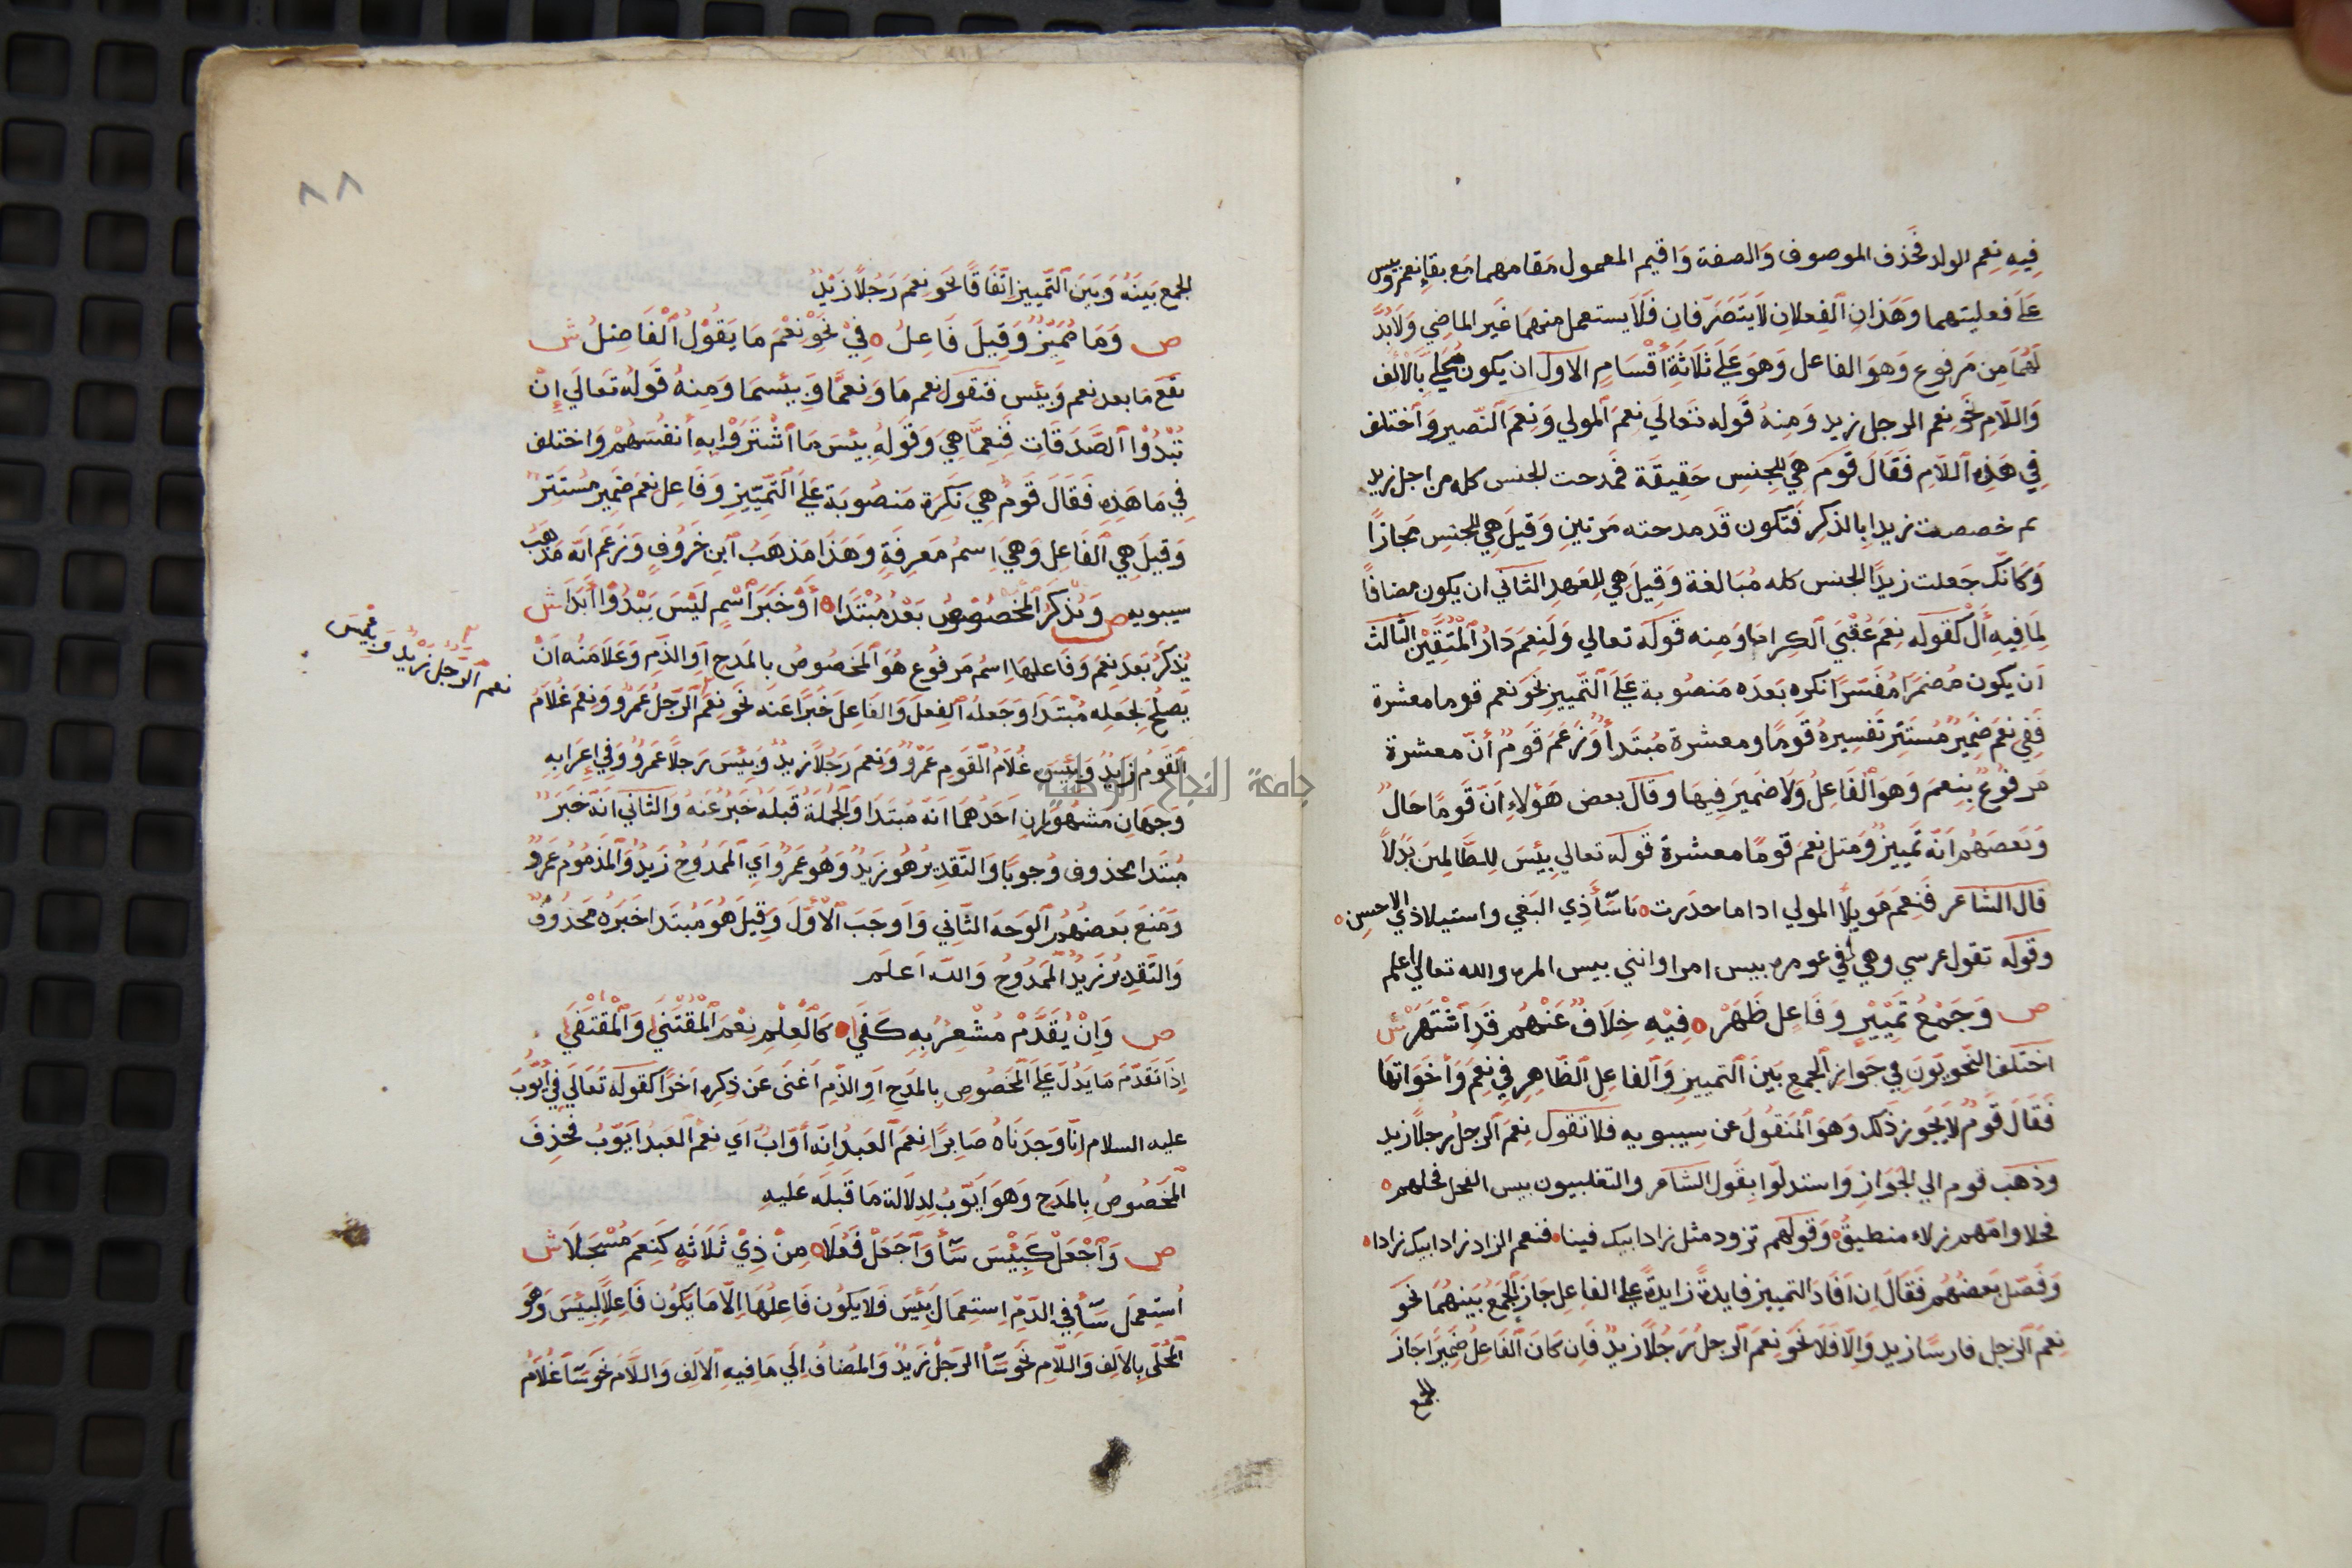 فِيهِ نِعم الولد فحَذف الموصوف وَالصفة وَاقيم المعمول مَقامهما مَع بقاءِ نعم وَبيس
عَلَى فعليتهما وَهَذانِ الفِعلانِ لَا يَتَصَرَّفانِ فَلَا يستعمل منهمَا غَير الماضِي وَلَابُدَّ
لَهُمَا مِن مَرفوع وَهوَ الفاعل وَهوَ عَلَى ثَلَاثَةِ أَقْسَامٍ الاول ان يكون مُحلى بِالْاَلِف
وَاللّامِ نحَو نِعم الرجل زيد وَمِنهُ قَوله تَعَالَى نِعمَ المولي وَنِعمَ النّصير وَاختلف
فِي هَذِهِ اللّامِ فَقَالَ قَوم هِيَ لِلجِنسِ حَقِيقَة فمَدحت الجنس كله من اجل زيد
ثم خصصت زيدا بِالذكِر فَتكون قَد مدحته مَرتينِ وَقيلَ هِي للجنسِ مَجازًا
وَكَانَّك جَعلت زَيدًا الجنس كله مُبَالغة وَقِيلَ هِي لِلعَهدِ الثاني ان يكون مضافًا
لِمَا فِيهِ أَلْ كقَوله نِعمَ عُقْبَى الكِرامَا وَمِنه قَوله تعالي وَلَنِعمَ دَارُ المُتَّقِيْنَ الثالث
اَن يكون مُضمَرًا مُفَسَرًا نكره بَعدَه مَنصُوبة عَلَى التّمييزِ نحَو نِعم قوما معشرة
فَفِي نِعمَ ضَمِيرٌ مُستَتِر تَفسِيرهُ قَومًا ومعشرة مُبتَدأ وَزَعَمَ قَومٌ أنّ معشرة
مَرفوُعٌ بِنِعمَ وَهوَ الفَاعِلُ وَلَا ضَميرَ فِيهَا وقال بعض هَؤلاءِ اَنَّ قَومًا حَالٌ
وَبَعضهُم اَنّه تمييز وَمثل نِعمَ قَومًا معشرة قوله تعالي بِئسَ لِلظّالِمينَ بَدَلاً
قال الشاعر فَنِعمَ مَويلًا المولي اذا ما حذرت ه بَاسَأُ ذِي البَغي واستيلا ذي الاحسن ه
وقوله تقول عرسي وهي لي في عومره بيس امرا وانني بيس المره والله تعالي اعلم
ص وَجَمْعُ تَمْيِيْزٍ وَفَاعِل ظَهَرْ ه فِيْهِ خِلَافٌ عَنْهُم قَدِ اشْتَهَرْ ش
اختَلف النّحويّونَ فِي جَوازِ الجمعِ بَينَ التمييزِ وَالفاعلِ الظّاهِرِ في نِعمَ وَأَخَوَاتِهَا
فَقَالَ قَومٌ لَا يَجوز ذَلك وَهوَ المَنقُولُ عن سِيبويه فلا تقول نِعمَ الرجل رجلًا زيد
وَذهَب قوم الي الجَوازِ وَاستدلّوا بِقَول الشاعر والتغلبيون بيس الفحل فحلهم ه
فحلا وامّهم زلاء منطيقٌ وَقَولهم تزود مثل زاد ابيك فينا ه فنعم الزاد زاد ابيك زادا ه
وَفَصَّل بَعضُهُم فَقَالَ اِن اَفَادَ التمييز فايدةً زايدةً عَلَى الفاعِل جَازَ الجَمْعُ بَينهُمَا نحَو
نِعمَ الرّجل فارسًا زيد وَالّا فَلَا نحَو نِعمَ الرجل رَجُلًا زيدٌ فَاِن كَانَ الفَاعِل ضَمِيرًا جَازَ
الجمع
٨٨
الجمع بَينَهُ وَبَينَ التّمييزِ اتّفَاقًا نحَو نِعمَ رَجُلًا زَيْدٌ
ص وَمَا مُمَيِّزٌ وَقِيلَ فَاعِلُ ه فِيْ نَحْوِ نِعْمَ مَا يَقُوْلُ الْفَاضِلُ ش
تقع مَا بعد نعم وَبِئس فتقول نعم مَا وَنِعمَّا وَبِيئسما وَمِنهُ قَوله تَعَالَي اِنْ
تُبْدُوا الصَّدَقَاتِ فَنِعِمَّا هِيَ وَقَولهِ بِيئسَ مَا اشْتَرَوْا بِهِ أَنفُسَهُمْ وَاختلف
فِي مَا هَذِه فَقَالَ قَومٌ هِيَ نَكِرَة مَنصُوبَة عَلَى التَّمْيِيزِ وَفَاعِل نِعمَ ضَمِير مُستَتِرٌ
وَقِيلَ هِي الفَاعِل وَهِيَ اِسمُ مَعرِفَةٍ وَهَذَا مَذهَبُ ابن خَرُوفٍ وَزَعَم انّه مَذهَبُ
سيبويه ص وَيُذْكَرُ المَخْصُوْصُ بَعْدُ مُبْتَدَا ه أَوْ خَبَرَ اسْمٍ لَيْسَ يَبْدُوْا أَبَدَا ش
يُذكَرُ بَعدَ نِعمَ وَفَاعلهَا اسُم مَرفُوع هُوَ المَخصُوصُ بالمَدح اَو الذّم وَعَلَامَتُه اَنْ
يَصلُح لجَعلِه مُبتَدَا وَجَعلهُ الفِعل وَالفَاعِلَ خَبَرًا عَنه نحَو نِعمَ الرّجل عَمرٌو وَنِعمَ غُلَامُ
القَوم زَيدٌ وَبِئسَ غُلَامُ القَوم عَمْرٌو وَنِعمَ رَجُلًا زَيدٌ وَبِئسَ رَجلًا عَمرٌو وَفِي إعرَابِهِ
وَجهَانِ مَشهُورَانِ اَحَدهُمَا انّه مُبتَدَا وَالجُملة قَبلَهُ خَبرٌ عَنهُ وَالثاني انّه خَبَرٌ
مُبتَدَا محذوف وُجوبًا وَالتّقدِيرُ هُو زَيدٌ وَهُو عَمرٌو اَي المَمدوُحُ زَيدٌ وَالمَذمُوم عَمرٌو
وَمَنَع بَعضُهُم الوَجه الثّانِي وَاَوجَبَ الْأَوَّلَ وَقِيلَ هُوَ مُبتَدا خَبَرُه مَحذُوفٌ
وَالتّقدِير زَيدٌ المَمدُوحُ وَاللّه اَعلَم
ص وَاِنْ يُقَدَّمْ مُشْعِرٌ بِهِ كَفَى ه كَالْعِلْمِ نِعْمَ الْمُقْتَنَى وَالْمُقْتَفَى
اِذَا تَقَدَّمَ مَا يَدُلّ عَلَى المَخصُوصِ بِالمَدحِ اَو الذّمِ اَغنَى عَن ذِكرِه اَخرًا كقَوله تَعَالَي فِي أَيّوُبَ
عليه السلام اِنّا وَجَدنَاهُ صَابِرًا نِعمَ العَبدُ اِنّه أوّابٌ اَي نِعْمَ العَبدُ ايّوبُ فَحُذِفَ
المَخصُوصُ بِالمَدحِ وَهوَ اَيّوُبُ لِدَلَالة مَا قَبلَه عَليهِ
ص وَاجْعَلْ كَبِئْسَ سَآءَ وَاجَعَلْ فَعُلَا ه مِنْ ذِيْ ثَلَاثَةٍ كَنِعمَ مُسْجَلَا ش
اُستعمِل سَآءَ فِي الذّمِّ اِستِعمَالَ بِئسَ فَلَا يَكُون فَاعِلهَا اِلّا مَا يَكوُن فَاعِلًا لِبِئسَ وَهوَ
المُحلّى بِالاَلِف وَاللّامِ نحَو سَآءَ الرّجُلُ زَيدٌ وَالمُضَافُ اِلَي مَا فِيهِ الاَلِف وَاللّامُ نَحو سَآءَ غُلَامُ
نعم الرّجُل زَيْدٌ وَبِئْسَ
جامعة النجاح الوطنية